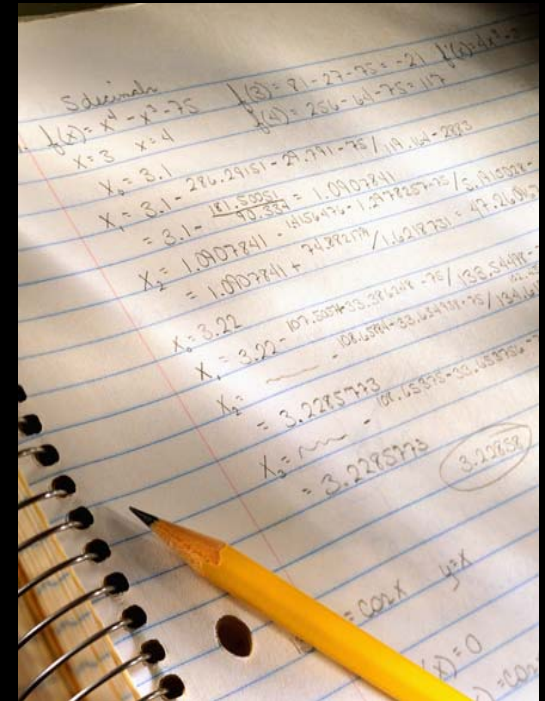 5 decimals
f(x) = x⁴ - x³ - 75 f(3) = 81 - 27 - 75 = -21 f'(x) = 4x³ -
x = 3 x = 4 f(4) = 256 - 64 - 75 = 117
X₀ = 3.1
X₁ = 3.1 - 286.29151 - 29.791 - 75 / 119.164 - 2883
= 3.1 - 181.50051 / 90.334 = 1.0907841
X₂ = 1.0907841 - 1.4156476 - 1.2978257 - 75 / 5.1910028 -
= 1.0907841 + 74.882179 / 1.6218731 = 47.2610
X₀ = 3.22
X₁ = 3.22 - 107.5054 - 33.386248 - 75 / 133.54498 -
X₂ = - 108.6584 - 33.654938 - 75 / 134.61
= 3.2285773
X₃ = - 108.65875 - 33.653756 -
= 3.2285773 3.22858
= cosx y=x
(x) = 0
) = cos